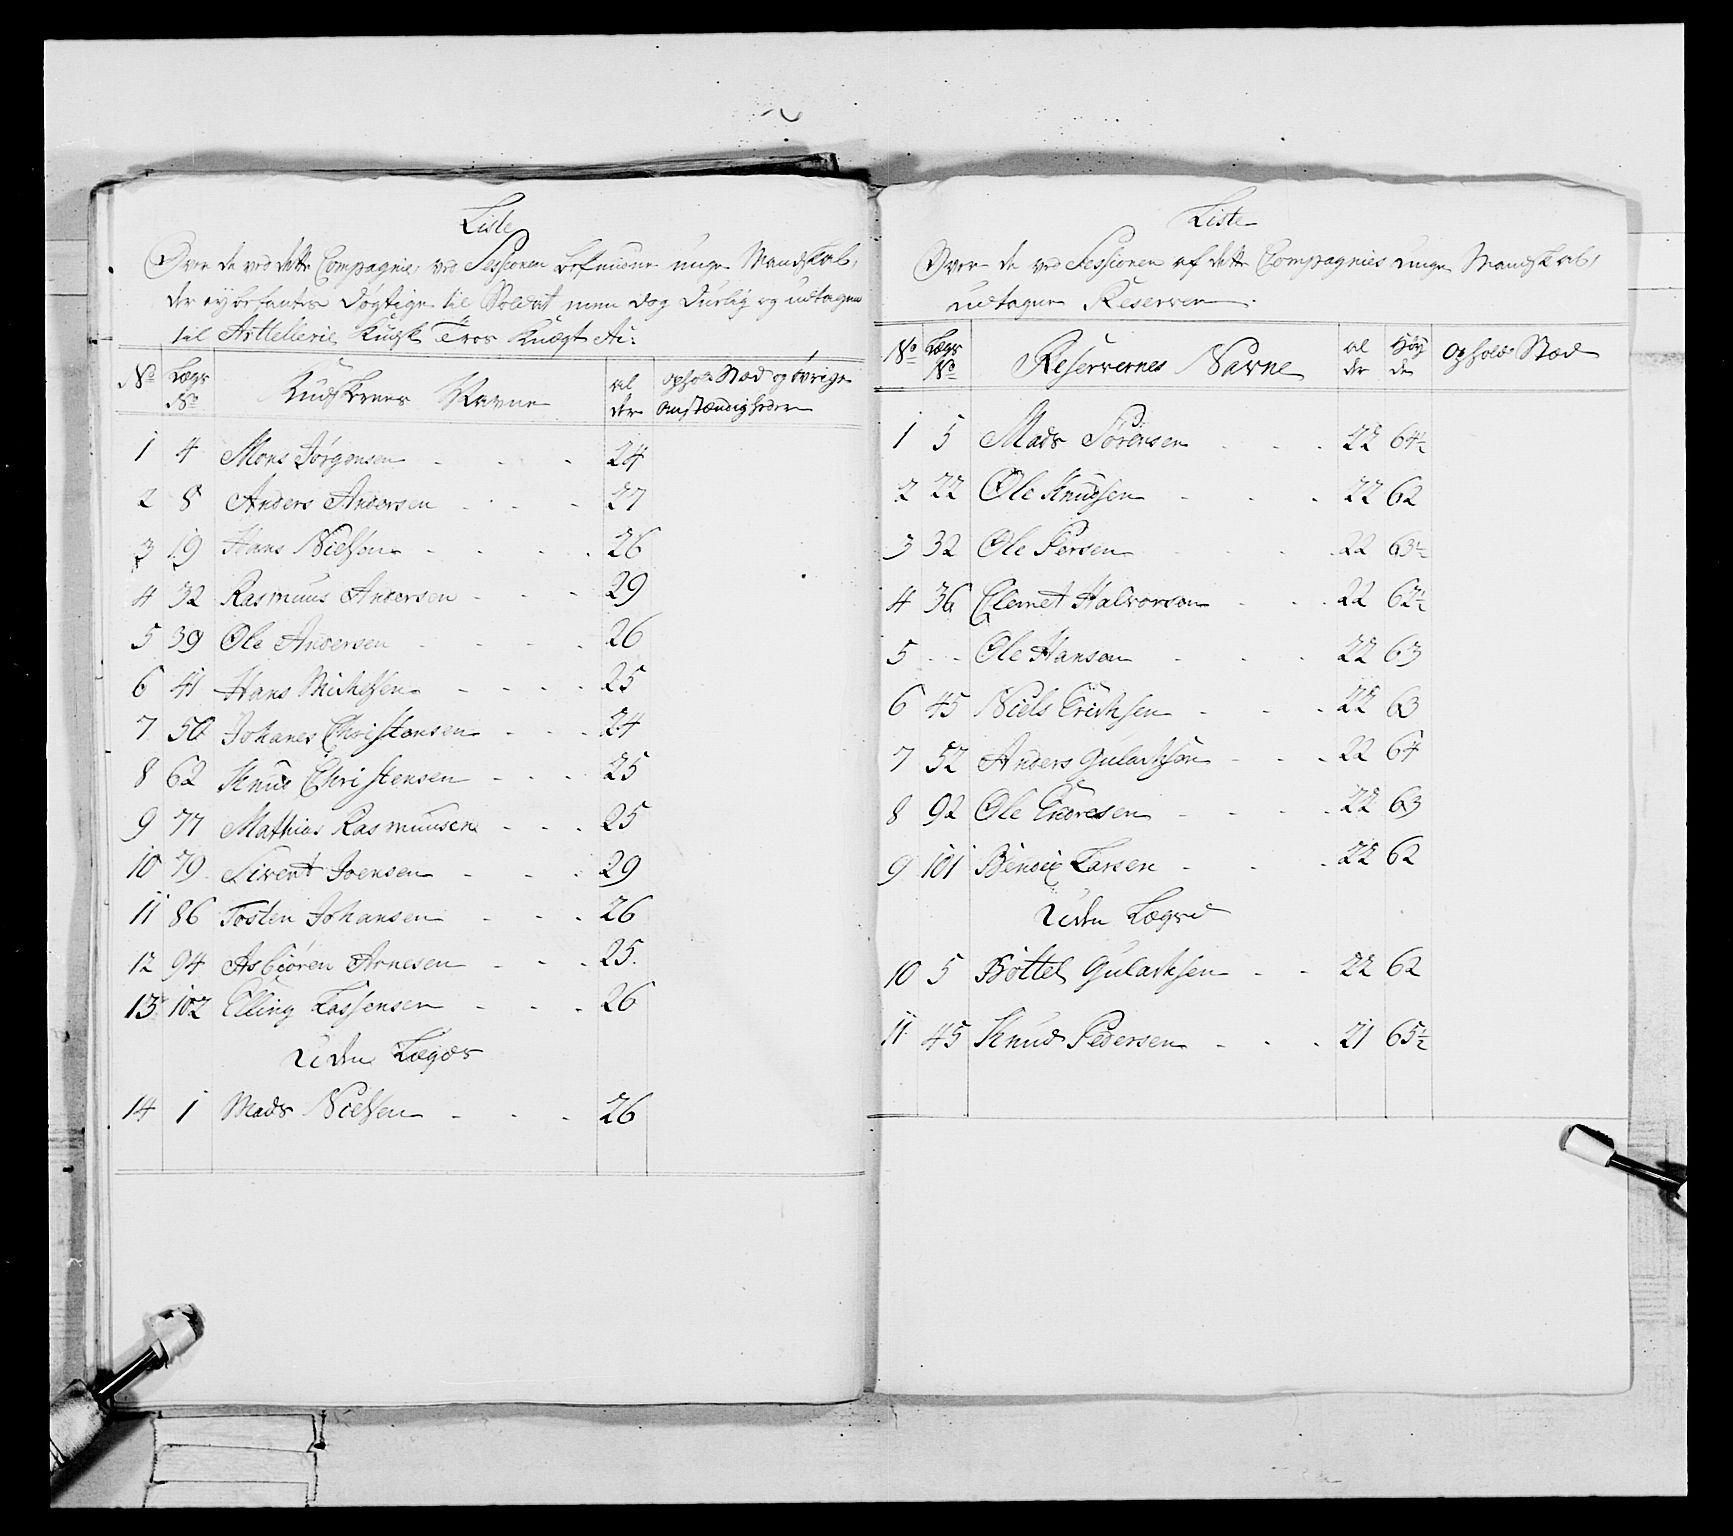 Liste
Over de ved dette Compagnie, ved Sessionen befundne unge Mandskab,
der ey befantes dygtige til Soldat, men dog Durlig og udtagen
til Artellerie Kudsk Tros Knægt &c:
No Lægs No Kudskenes Navne al der opholds Stæd og øvrige omstændigheder
1 4 Mons Jørgensen 24
2 8 Anders Andersen 27
3 19 Hans Nielsen 26
4 32 Rasmuus Andersen 29
5 39 Ole Andersen 26
6 41 Hans Michelsen 25
7 56 Johanes Christensen 24
8 62 Knud Christensen 25
9 77 Mathias Rasmuusen 25
10 79 Sivert Joensen 29
11 86 Tosten Johansen 26
12 94 Asbiören Arnesen 25.
13 102 Elling Lassensen 26
Uden Lægds
14 1 Mads Nielsen 26
Liste
Over de ved Sessionen af dette Compagnies unge Mandskab,
udtagne Reserver.
No Lægs No Reservernes Navne al der Høy de Opholds Stæd
1 5 Mads Sörensen 22 64½
2 22 Ole Knudsen 22 62
3 32 Ole Persen 22 63½
4 36 Clemet Halvorsen 22 62½
5 - - Ole Hansen 22 63
6 45 Niels Erichsen 22 63
7 52 Anders Gulachsen 22 64
8 92 Ole Endresen 22 63
9 101 Bendix Larsen 22 62
Uden Lægsd
10 5 Bottel Gulachsen 22 62
11 45 Knud Pedersen 21 65½